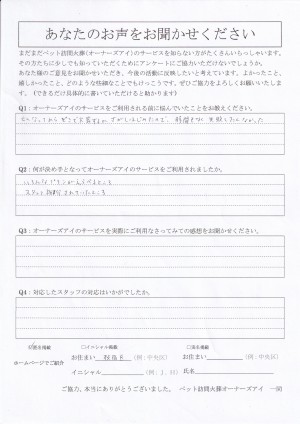 あなたのお声をお聞かせください
まだまだペット訪問火葬(オーナーズアイ)のサービスを知らない方がたくさんいらっしゃいます。
その方たちに少しでも知っていただくためにアンケートにご協力いただけないでしょうか。
あなた様のご意見をお聞かせいただき、今後の活動に反映したいと考えています。よかったこと、
嬉しかったこと、どのような些細なことでもけっこうです。ぜひご協力をよろしくお願いいたしま
す。(できるだけ具体的に書いていただけると助かります)
Q1：オーナーズアイのサービスをご利用される前に悩んでいたことをお教えください。
Q2：何が決め手となってオーナーズアイのサービスをご利用されましたか。
Q3：オーナーズアイのサービスを実際にご利用なさってみての感想をお聞かせください。
Q4：対応したスタッフの対応はいかがでしたか。
匿名掲載 □イニシャル掲載 □実名掲載
お住まい (例：中央区) お住まい (例：中央区)
ホームページでご紹介
イニシャル (例：J. H) 氏名
ご協力、本当にありがとうございました。 ペット訪問火葬オーナーズアイ 一同